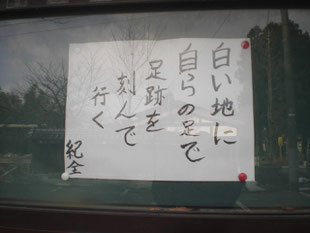 白い地に
自らの足で
足跡を
刻んで
行く
紀全